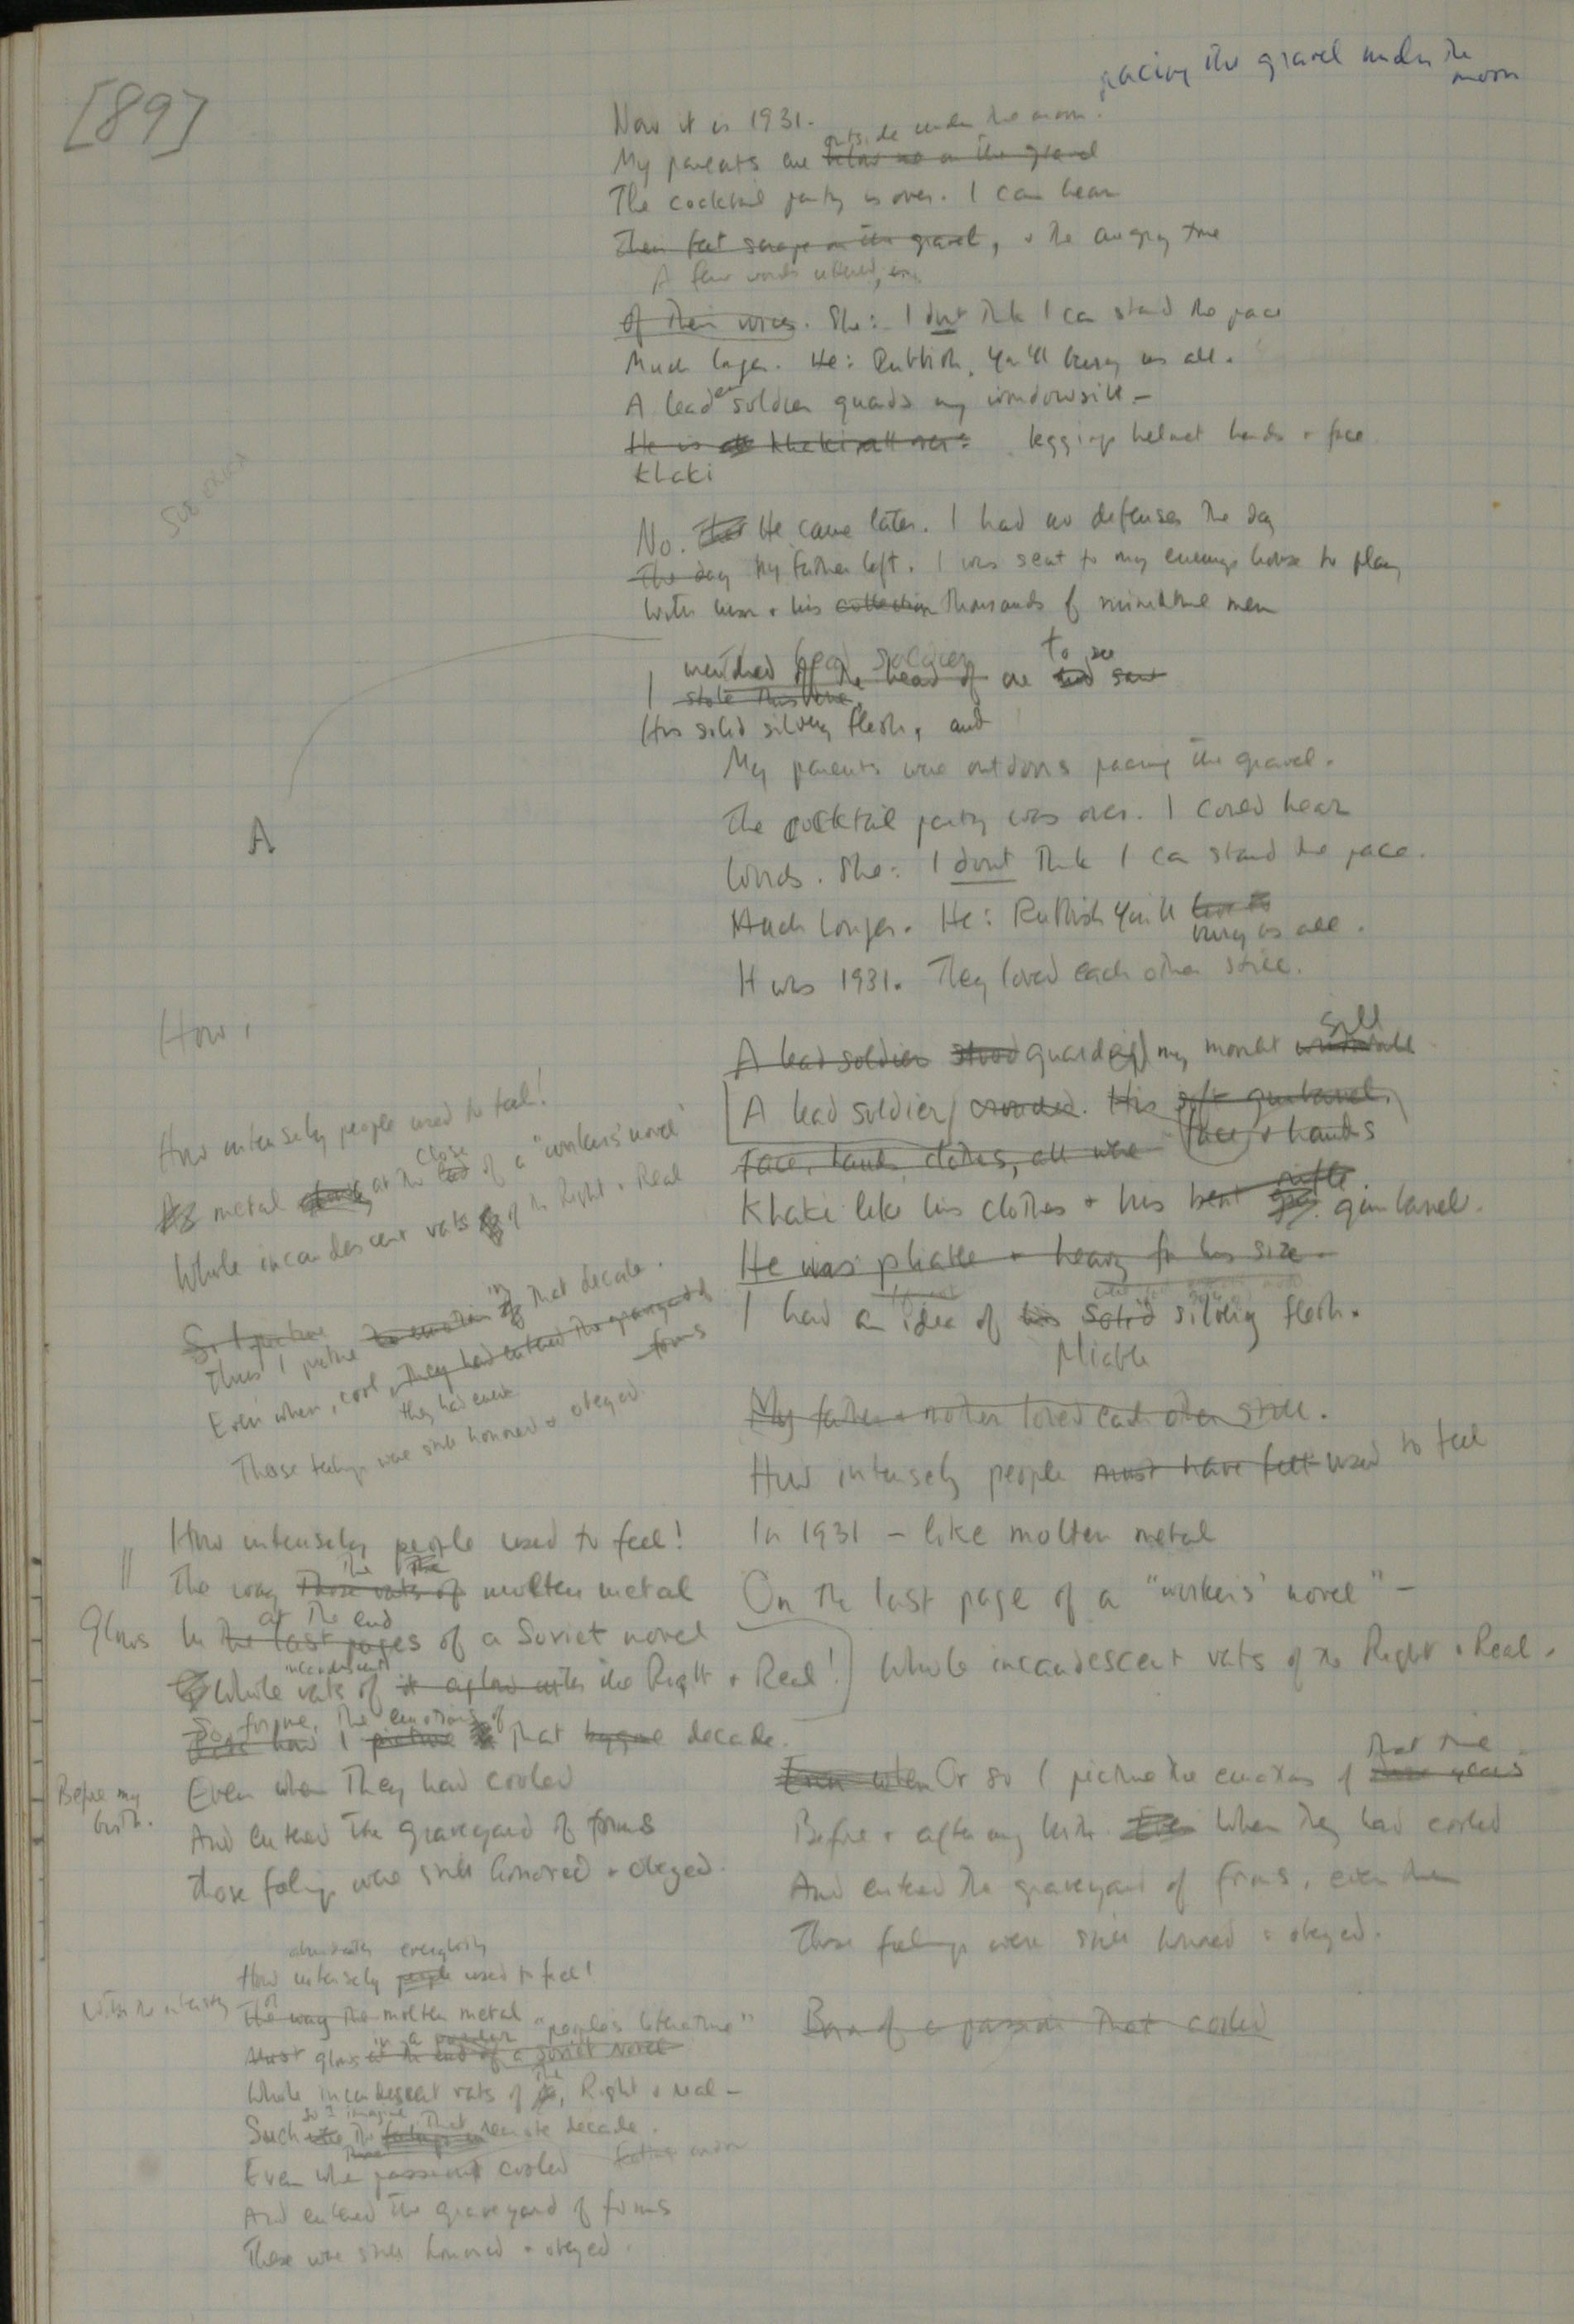 [89]
pacing the gravel under the
moon
Now it is 1931.
outside under the moon.
My parents are below on the gravel
The cocktail party is over. I can hear
Their feet scrape on the gravel, + the angry tone
A few words uttered,
of their voices. She: I don't think I can stand the pace
Much longer. He: Rubbish, You'll bury us all.
A leaden soldier guards my windowsill –
He is khaki all over: leggings helmet hands + face
Khaki
No. He came later. I had no defenses the day
The day My father left. I was sent to my enemy's house to play
With him + his collection thousands of miniature men
lead soldier
wrenched off the head of one to see
I stole this one,
His solid silvery flesh, and
My parents were outdoors pacing the gravel.
The cocktail party was over. I could hear
Words. She: I don't think I can stand the pace.
Much longer. He: Rubbish You'll
bury us all.
It was 1931. They loved each other still.
A
sill
A lead soldier stood guard my
A lead soldier/ His gunbarrel.
Face, hands, clothes, all were face + hands
rifle
Khaki like his clothes + his bent gun barrel.
He was pliable + heavy for his size.
I had an idea of his solid silvery flesh.
pliable
My father + mother loved each other still.
How intensely people must have felt used to feel
In 1931 – like molten metal
On the last page of a "workers' novel" –
Whole incandescent vats of the Right + Real.
that time
Even when Or so I picture the emotions of those years
Before + after my birth. Even When they had cooled
And entered the graveyard of forms, even then
Those feelings were still honored + obeyed.
Born of a passion that cooled
How,
How intensely people used to feel!
close
metal at the end of a "workers' novel"
Whole incandescent vats of the Right + Real
So I picture the emotion in that decade.
Thus I picture
Even when, cool, they had entered the graveyard of
forms
they had entered
Those feelings were still honored + obeyed
How intensely people used to feel!
the the
The way Those vats of molten metal
at the end
Glows In the last pages of a Soviet novel
incandescent
Whole vats of it aglow with the Right + Real!
So, for me, the emotions of
I picture that bygone decade.
Before my
birth.
Even when They had cooled
And entered the graveyard of forms
Those feelings were still honored + obeyed.
everybody
How intensely people used to feel!
With the intensity of
The way the molten metal
in a "people's literature"
Must glow at the end of a Soviet novel
Whole incandescent vats of the Right + Real –
so I imagine that
Such the feelings remote decade.
Even when passions cooled
And entered the graveyard of forms
These were still honored + obeyed.